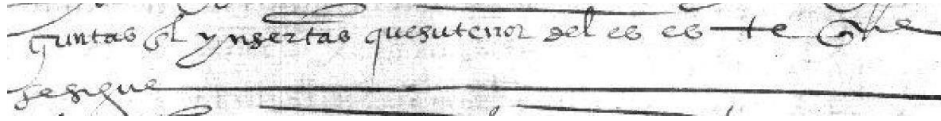 guntas ynsertas quesutenor del es este que
sesigue